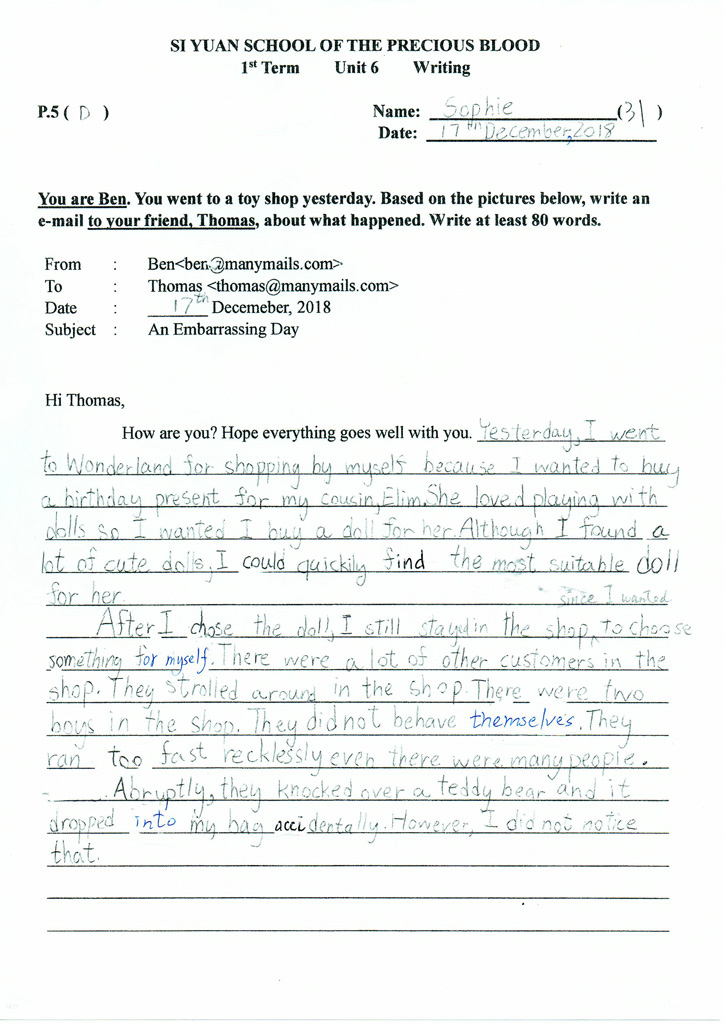 SI YUAN SCHOOL OF THE PRECIOUS BLOOD
1st Term Unit 6 Writing
P.5 ( D ) Name: Sophie (31)
Date: 17th December,2018
You are Ben. You went to a toy shop yesterday. Based on the pictures below, write an
e-mail to your friend, Thomas, about what happened. Write at least 80 words.
From : Ben<ben@manymails.com>
To : Thomas <thomas@manymails.com>
Date : 17th Decemeber, 2018
Subject : An Embarrassing Day
Hi Thomas,
How are you? Hope everything goes well with you. Yesterday, I went
to Wonderland for shopping by myself because I wanted to buy
a birthday present for my cousin, Elim. She loved playing with
dolls so I wanted I buy a doll for her. Although I found a
lot of cute dolls, I could quickily find the most suitable doll
for her. since I wanted
After I chose the doll, I still stayed in the shop to choose
something for myself. There were a lot of other customers in the
shop. They strolled around in the shop. There were two
boys in the shop. They did not behave themselves. They
ran too fast recklessly even there were many people.
Abruptly, they knocked over a teddy bear and it
dropped into my bag accidentally. However, I did not notice
that.